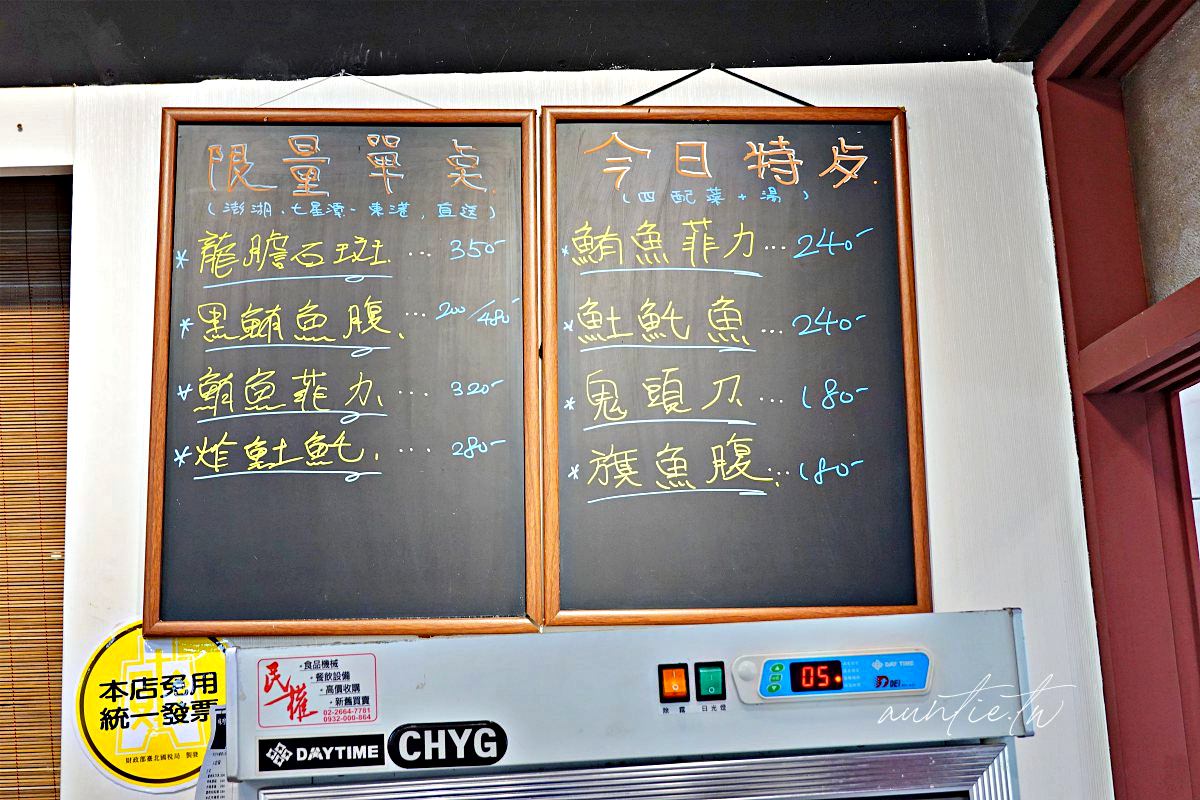 限量單点.
(澎湖、七星潭、東港,直送)
*龍膽石斑. ... 350-
*黑鮪魚腹. ... 200/480-
*鮪魚菲力. ... 320-
*炸魠魠. ... 280-
今日特点.
(四配菜+湯)
*鮪魚菲力 ... 240-
*魠魠魚 ... 240-
*鬼頭刀 ... 180-
*旗魚腹. ... 180-
本店免用
統一發票
財政部臺北國稅局 製發
民權
·食品機械
·餐飲設備
·高價收購
·新舊買賣
02-2664-7781
0932-000-864
DAYTIME
CHYG
除霧 日光燈
05
DAY TIME
DEI
auntie.tw